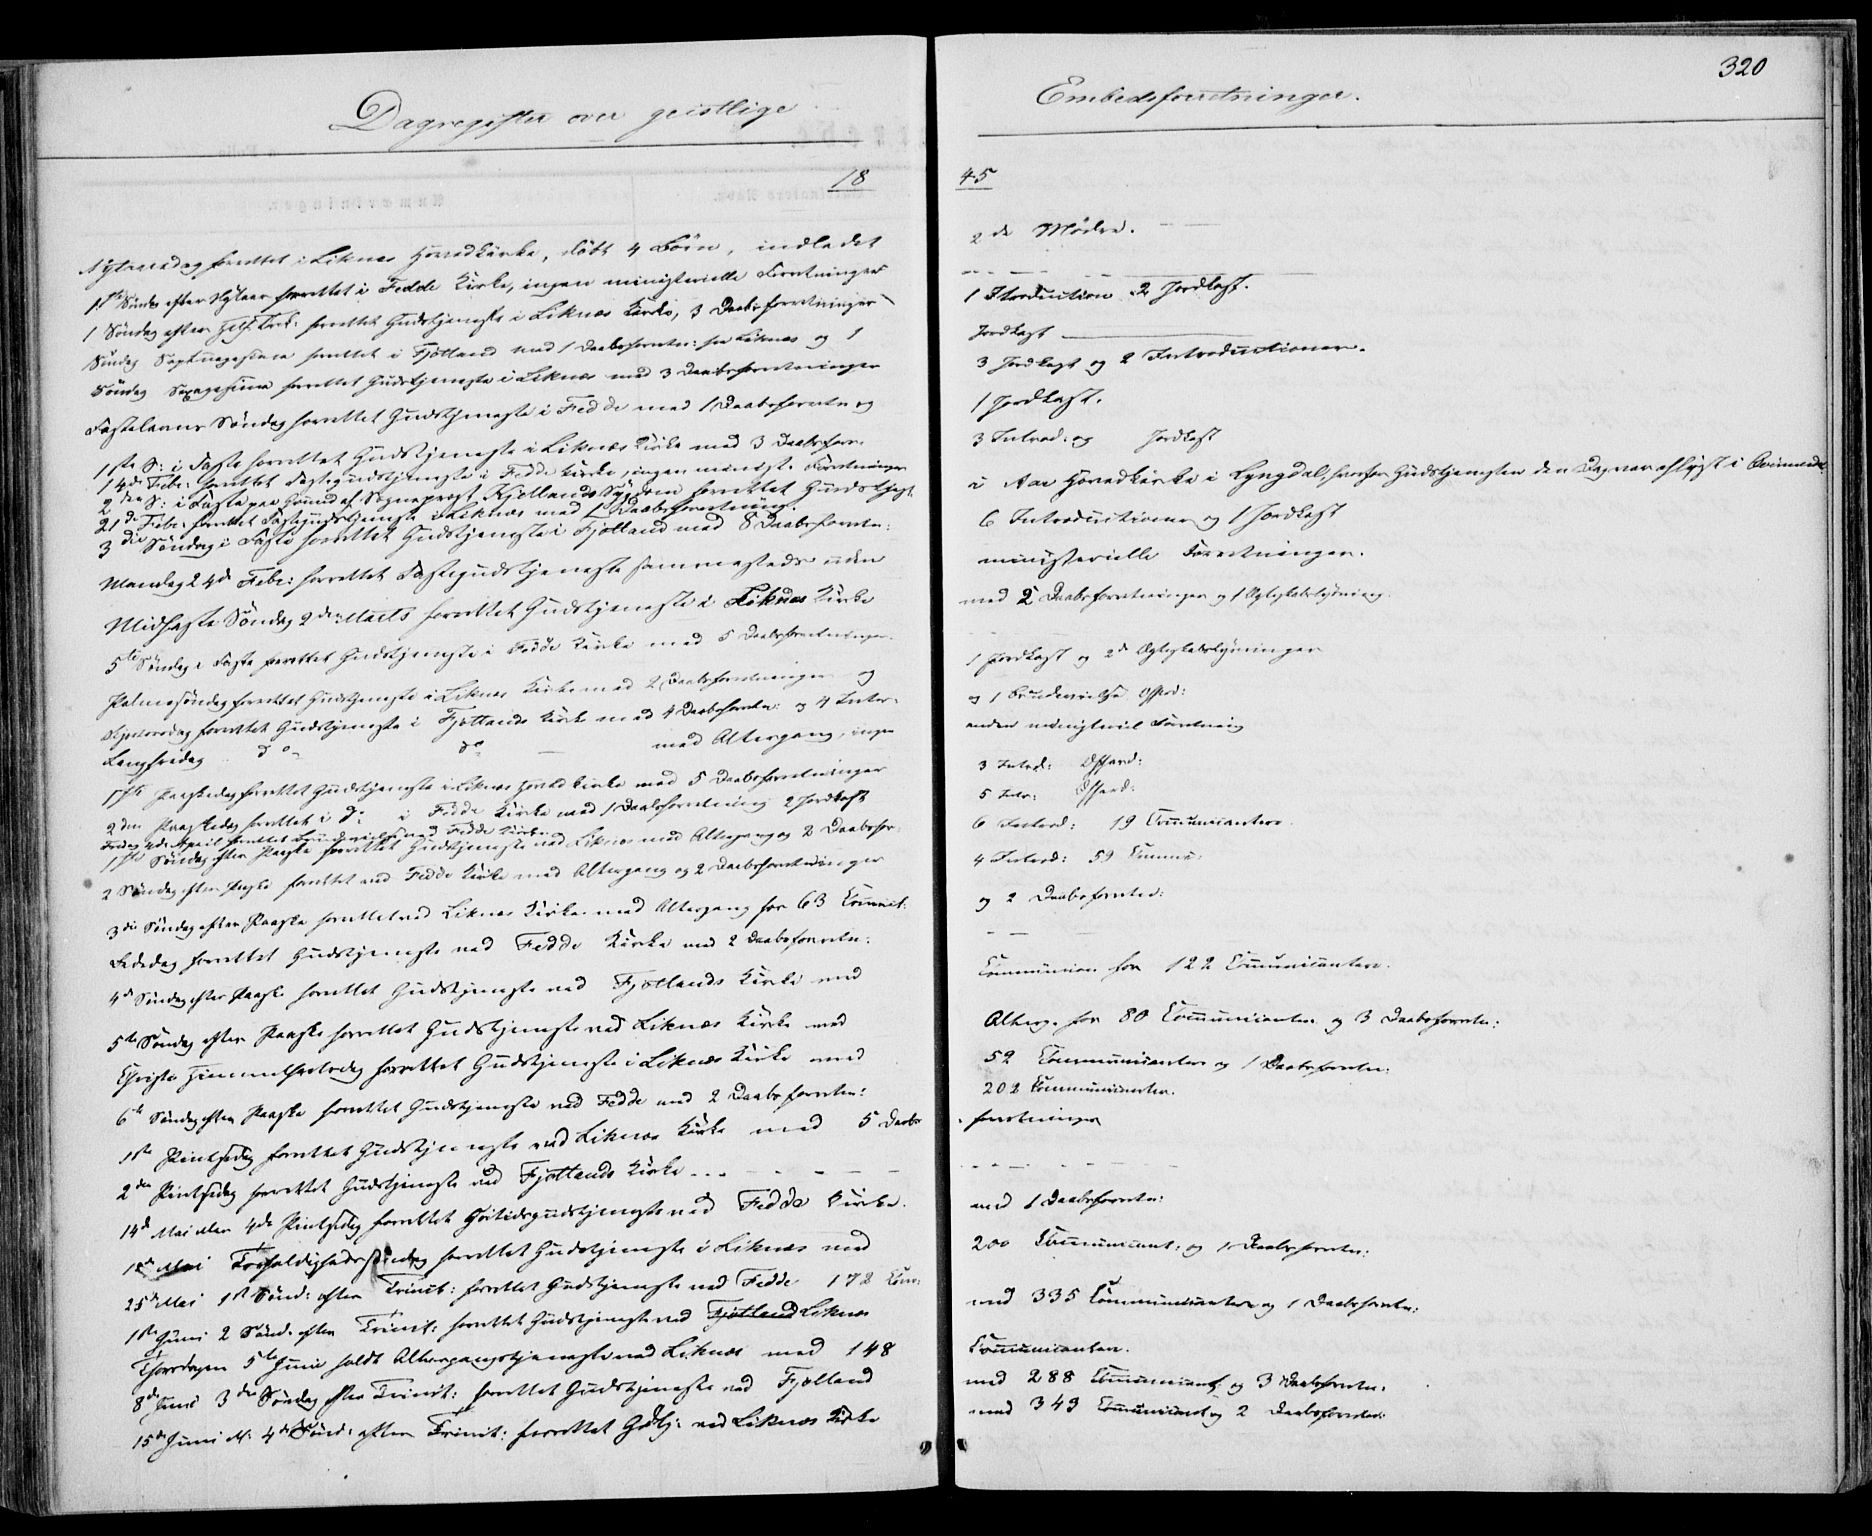 320
Dagregister over geistlige
Embedsforretninger.
18
45
Nytaarsdag forrettet i Liknes Hovedkirke, døbt 4 Børn, indledet
2de Mødre.
1ste Søndag efter Nytaar forrettet i Fedde Kirke, ingen ministerielle Forretninger
1 Søndag efter Hell. Trek: forrettet Gudstjeneste i Liknes Kirke, 3 Daabsforretninger
1 Introduction 2 Jordkast.
Søndag Septuagesima forrettet i Fjotland med 1 Daabsforretn: fra Liknes og 1
Jordkast
Søndag Sexagesima forrettet Gudstjeneste i Liknes med 3 Daabsforretninger
3 Jordkast og 2 Introductioner.
Fastelavns Søndag forrettet Gudstjeneste i Fedde med 1 Daabsforretn og
1 Jordkast.
1ste S: i Faste forrettet Gudstjeneste i Liknes Kirke med 3 Daabsforr.
3 Introd: og Jordkast
14de Febr: forrettet Fastegudstjeneste i Fedde Kirke, ingen minist. Forretninger
2den S: i Faste paa Grund af Sogneprest Kjellands Sygdom forrettet Gudstjst.
i Aae Hovedkirke i Lyngdal, hvorfor Gudstjenesten den Dag var aflyst i
21de Febr: forrettet Fastegudstjeneste i Liknes med 1 Daabsforretning.
3die Søndag i Faste forrettet Gudstjeneste i Fjotland med 8 Daabsforretn:
6 Introductioner og 1 Jordkast
Mandag 24de Febr: forrettet Fastegudstjeneste sammesteds uden
ministerielle Forretninger.
Midfaste Søndag 2den Marts forrettet Gudstjeneste i Liknes Kirke
med 2 Daabsforretninger og 1 Ægteskabslysning.
5te Søndag i Faste forrettet Gudstjeneste i Fedde Kirke med 5 Daabsforretninger.
1 Jordkast og 2de Ægteskabslysninger
Palmesøndag forrettet Gudstjeneste i Liknes Kirke med 2 Daabsforretninger og
og 1 Brudevielse Offerd:
Skjertorsdag forrettet Gudstjeneste i Fjotlands Kirke med 4 Daabsforretn: og 4 Intro:
anden ministeriel Forretning
Langfredag do do med Altergang, ingen
1ste Paaskedag forrettet Gudstjeneste i Liknes Hovedkirke med 5 Daabsforretninger
3 Introd: Offerd:
2den Paaskedag forrettet i do i Fedde Kirke med 1 Daabsforretning 2 Jordkast
5 Intr: Offerd:
Fredag 4de April forrettet Brudevielse ved Fedde Kirke
1ste Søndag efter Paaske forrettet Gudstjeneste ved Liknes med Altergang og 2 Daabsfor:
6 Introd: 19 Communicantere.
2 Søndag efter Paaske forrettet ved Fedde Kirke med Altergang og 2 Daabsforretninger
4 Introd: 59 Commu:
3die Søndag efter Paaske forrettet ved Liknes Kirke med Altergang for 63 Commit:
og 2 Daabsforretn:
Bededag forrettet Gudstjeneste ved Fedde Kirke med 2 Daabsforretn:
4de Søndag efter Paaske forrettet Gudstjeneste ved Fjotlands Kirke med
Communion for 122 Communicantere.
5te Søndag efter Paaske forrettet Gudstjeneste ved Liknes Kirke med
Alterg. for 80 Communicanter og 3 Daabsforretn:
Christi Himmelfartsdag forrettet Gudstjeneste i Liknes Kirke med
59 Communicantere og 1 Daabsforretn:
6te Søndag efter Paaske forrettet Gudstjeneste ved Fedde med 2 Daabsforretn:
202 Communicanter.
1ste Pintsedag forrettet Gudstjeneste ved Liknes Kirke med 5 Daabs
forretninger
2den Pintsedag forrettet Gudstjeneste ved Fjotlands Kirke
14de Mai eller 4de Pintsedag forrettet Høitidsgudstjeneste ved Fedde Kirke.
med 1 Daabsforretn:
18de Mai Trefoldighedssøndag forrettet Gudstjeneste i Liknes med
200 Communicant: og 1 Daabsforretn:
25de Mai 1st Sønd: efter Trinit: forrettet Gudstjeneste ved Fedde 172 Com:
1ste Juni 2 Sønd. efter Trinit: forrettet Gudstjeneste ved Fjotland Liknes
med 335 Communicantere og 1 Daabsforretn:
Thorsdagen 5te Juni holdt Altergangstjeneste ved Liknes med 148
Communicanter.
8de Juni 3die Søndag efter Trinit: forrettet Gudstjeneste ved Fjotland
med 288 Communicant: og 3 Daabsforretn:
15de Juni 4de Sønd: efter Trinit: forrettet Gdtj: ved Liknes Kirke
med 349 Communicant og 2 Daabsforretn: